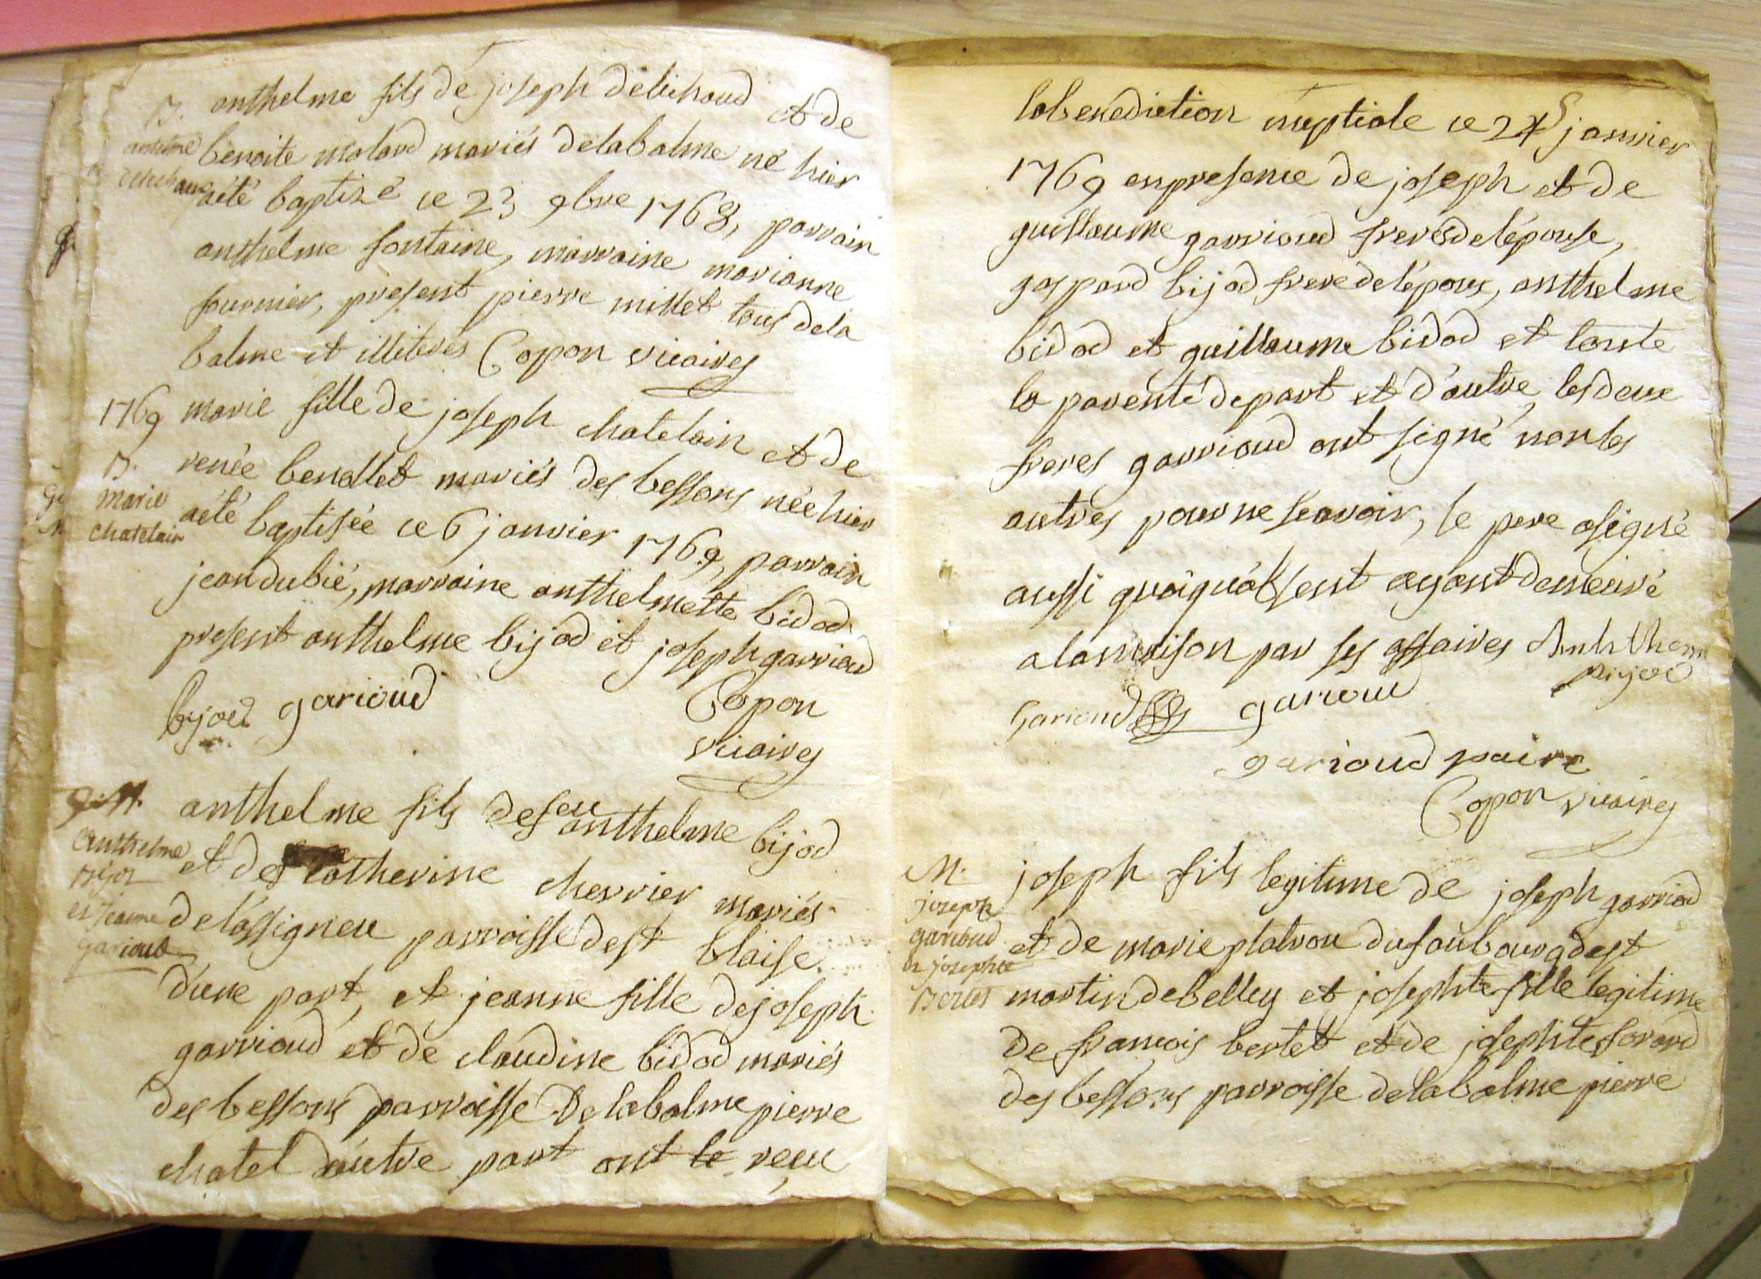 B. anthelme fils de joseph delichoud et de
antelme benoite molard mariés delabalme né hier
aété baptizé ce 23 9bre 1768, parrain
anthelme fontaine, marraine marianne
fournier, present pierre millet tous dela
balme et illiterés Copon vicaires
1769 marie fille de joseph chatelain et de
B. renée benollet mariés des bessons née hier
marie aété baptisée ce 6 janvier 1769, parrain
chatelain
jean dubié, marraine anthelmette bidod
present anthelme bijod et joseph garrioud
bijod garioud Copon
vicaires
anthelme fils defeu anthelme bijod
Anthelme et de catherine chevrier mariés
Bijod
et Jeanne de lassignieu parroisse de st blaise
garioud
d'une part, et jeanne fille de joseph
garrioud et de claudine bidod mariés
des bessons parroisse De labalme pierre
chatel d'autre part ont le reçu
labenediction nuptiale ce 24 janvier
1769 enpresence de joseph et de
guillaume garrioud freres delépouse,
gaspard bijod frere delépoux, anthelme
bidod et guillaume bidod et toute
la parenté depart et d'autre, les deux
freres garrioud ont signé non les
autres pour ne scavoir, le pere asigné
aussi quoiqu'absent ayant demeuré
alamaison par ses affaires Anthelme
Bijod
Garioud garioud
garioud paire
Copon vicaires
M. joseph fils legitime de joseph garrioud
joseph
garioud et de marie platrou dufaubourg de st
et josephte
Bertet martin debelley et josephte fille legitime
de francois bertet et de josephte forard
des bessons parroisse delabalme pierre